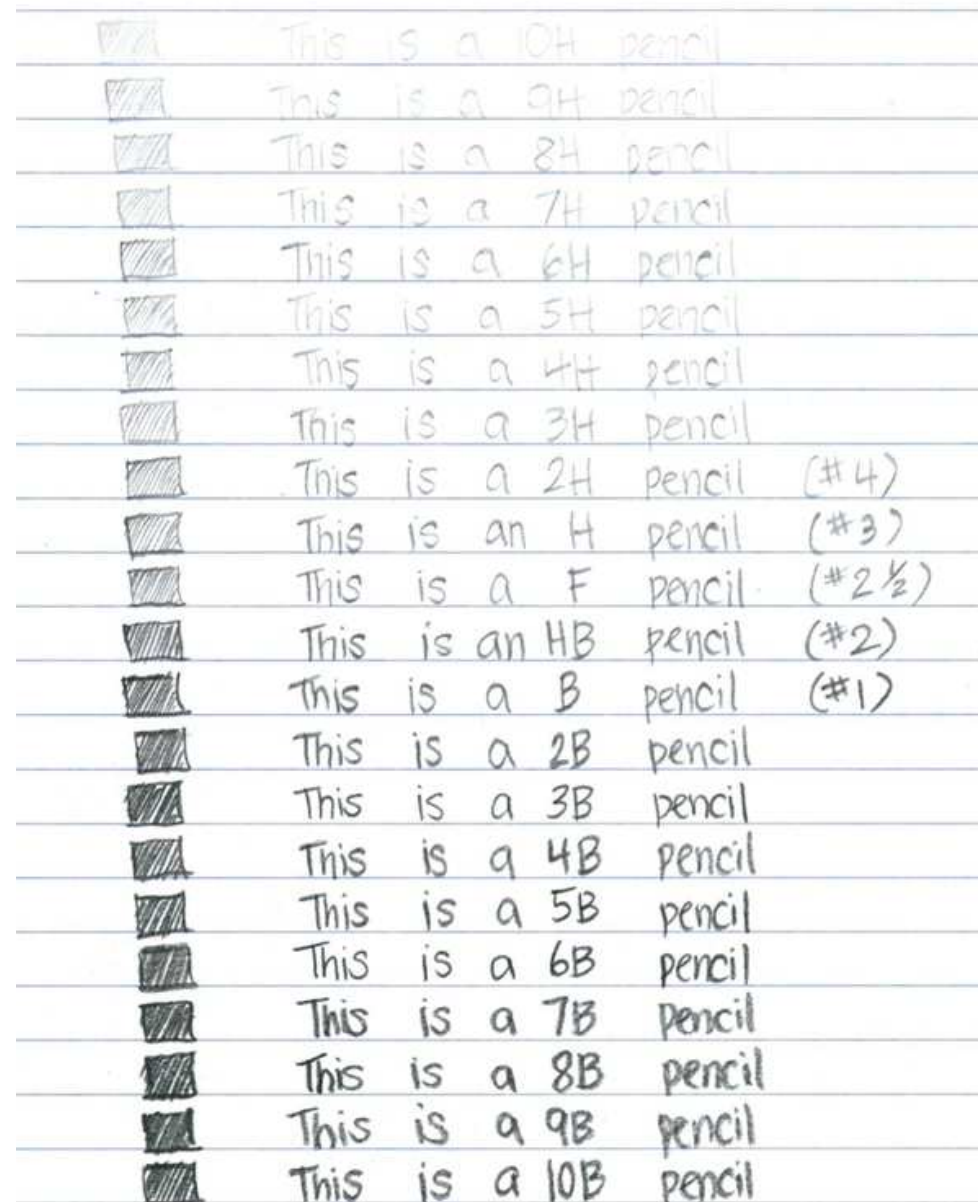 This is a 10H pencil
This is a 9H pencil
This is a 8H pencil
This is a 7H pencil
This is a 6H pencil
This is a 5H pencil
This is a 4H pencil
This is a 3H pencil
This is a 2H pencil (#4)
This is an H pencil (#3)
This is a F pencil (#2 1/2)
This is an HB pencil (#2)
This is a B pencil (#1)
This is a 2B pencil
This is a 3B pencil
This is a 4B pencil
This is a 5B pencil
This is a 6B pencil
This is a 7B pencil
This is a 8B pencil
This is a 9B pencil
This is a 10B pencil